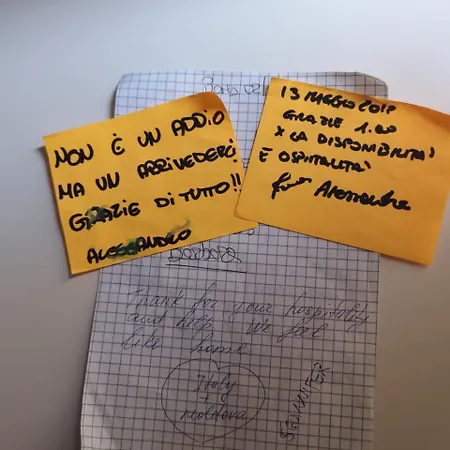 NON È UN ADDIO
MA UN ARRIVEDERCI
GRAZIE DI TUTTO!!
ALESSANDRO
13 MAGGIO
GRAZIE 1.00
X LA DISPONIBILITA'
E OSPITALITA'
Alessandra
Barbara
Thank for your hospitality
and help. We feel
like home
Italy
+
Moldova